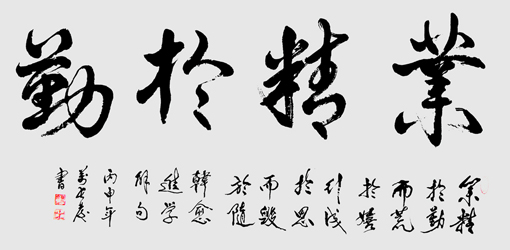 業精於勤
業精
於勤
而荒
於嬉
行成
於思
而毀
於隨
韓愈
進学
解句
丙申年
書